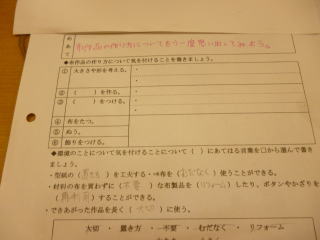 めあて 布作品の作り方についてもう一度思い出してみよう。
◆布作品の作り方について気を付けることを書きましょう。
① 大きさや形を考える。
② ( )を作る。
③ ( )をつける。
④ 布をたつ。
⑤ ぬう。
⑥ 飾りをつける。
◆環境のことについて気を付けることについて( )にあてはまる言葉を□から選んで書きましょう。
・型紙の( )を工夫する・⇒布を(むだなく)使うことができる。
・材料の布を買わずに(不要)な布製品を(リフォーム)したり、ボタンやかざりを
(再利用)することができる。
・できあがった作品を長く(大切)に使う。
大切 ・ ・不要 ・ むだなく ・ リフォーム